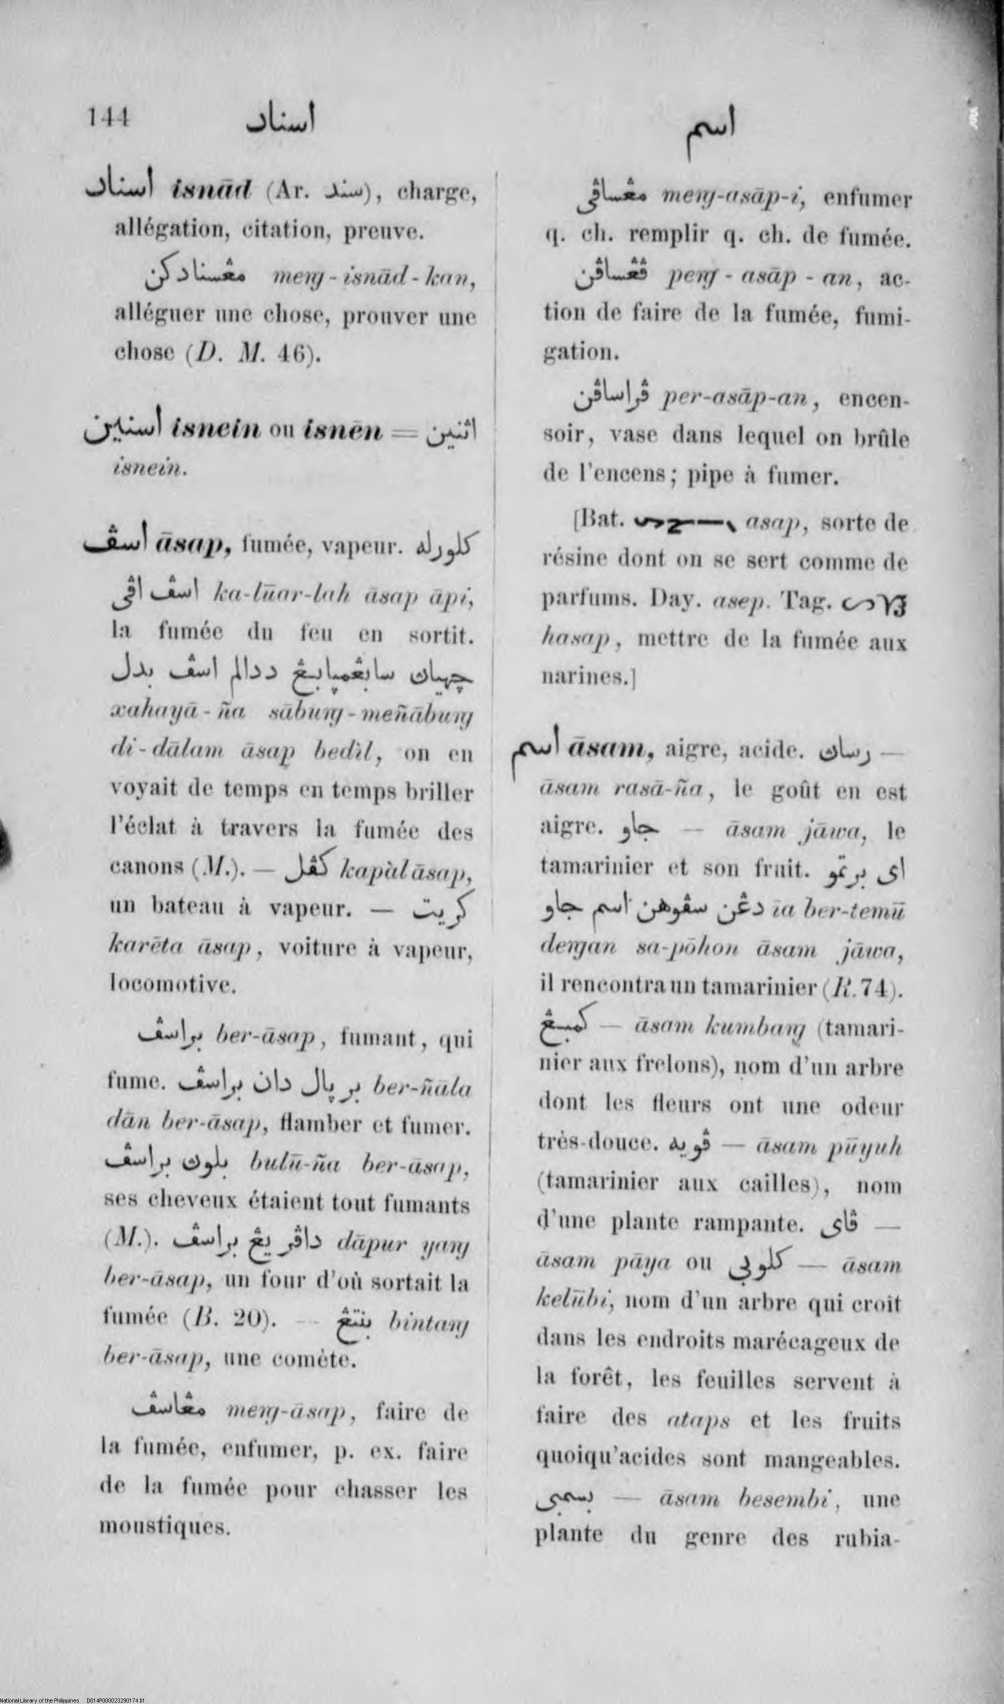 144 اسناد
اسم
اسناد isnād (Ar. سند), charge,
allégation, citation, preuve.
مڠسنادکن meṅ-isnād-kan,
alléguer une chose, prouver une
chose (D. M. 46).
اسنين isnein ou isnēn = اثنين
isnein.
اسڤ āsap, fumée, vapeur. کلورله
اسڤ اڤي ka-lūar-lah āsap āpi,
la fumée du feu en sortit.
xahayā-ña sābuṅ-meñābuṅ
di-dālam āsap bedìl, on en
voyait de temps en temps briller
l'éclat à travers la fumée des
canons (M.). — کڤل kapàl āsap,
un bateau à vapeur. — کريت
karēta āsap, voiture à vapeur,
locomotive.
براسڤ ber-āsap, fumant, qui
fume. ber-ñāla
dān ber-āsap, flamber et fumer.
bulū-ña ber-āsap,
ses cheveux étaient tout fumants
(M.). داڤر يڠ براسڤ dāpur yaṅ
ber-āsap, un four d'où sortait la
fumée (B. 20). — بنتڠ bintaṅ
ber-āsap, une comète.
مڠاسڤ meṅ-āsap, faire de
la fumée, enfumer, p. ex. faire
de la fumée pour chasser les
moustiques.
مڠساڤي meṅ-asāp-i, enfumer
q. ch. remplir q. ch. de fumée.
ڤڠساڤن peṅ-asāp-an, ac-
tion de faire de la fumée, fumi-
gation.
ڤراساڤن per-asāp-an, encen-
soir, vase dans lequel on brûle
de l'encens; pipe à fumer.
[Bat. asap, sorte de
résine dont on se sert comme de
parfums. Day. asep. Tag.
hasap, mettre de la fumée aux
narines.]
اسم āsam, aigre, acide. —
āsam rasā-ña, le goût en est
aigre. جاو — āsam jāwa, le
tamarinier et son fruit. اي برتمو
دڠن سڤوهن اسم جاو ia ber-temū
deṅan sa-pōhon āsam jāwa,
il rencontra un tamarinier (R. 74).
کمبڠ — āsam kumbaṅ (tamari-
nier aux frelons), nom d'un arbre
dont les fleurs ont une odeur
très-douce. ڤويه — āsam pūyuh
(tamarinier aux cailles), nom
d'une plante rampante. ڤاي —
āsam pāya ou کلوبي — āsam
kelūbi, nom d'un arbre qui croît
dans les endroits marécageux de
la forêt, les feuilles servent à
faire des ataps et les fruits
quoiqu'acides sont mangeables.
بسمبي — āsam besembi, une
plante du genre des rubia-
National Library of the Philippines